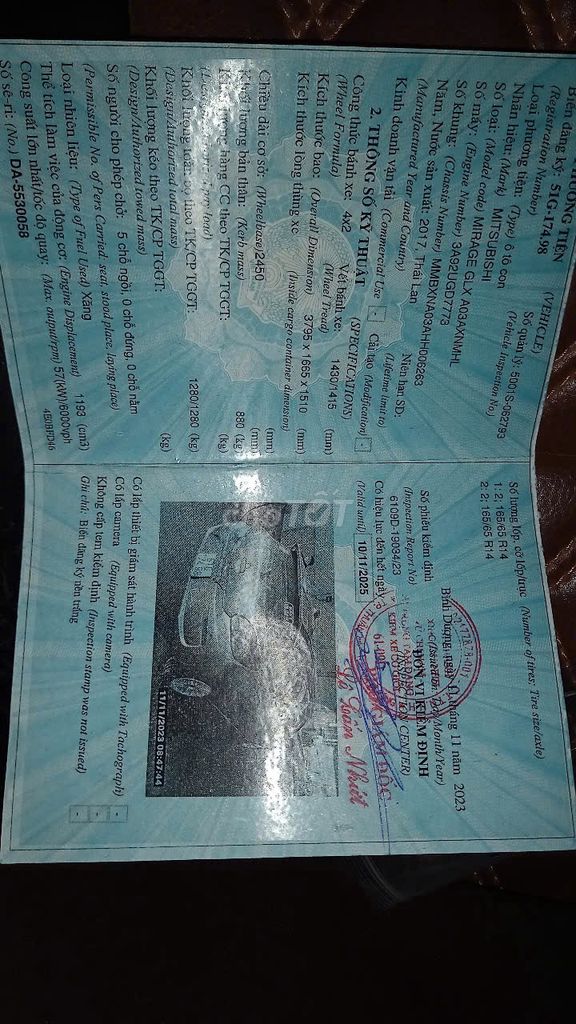 (VEHICLE)
Biển đăng ký: 51G-174.98
(Registration Number)
Số quản lý: 5001S-062793
(Vehicle Inspection No.)
Loại phương tiện: (Type) ô tô con
Nhãn hiệu: (Mark) MITSUBISHI
Số loại: (Model code) MIRAGE GLX A03AXNMHL
Số máy: (Engine Number) 3A92UGD7773
Số khung: (Chassis Number) MMBXNA03AHH006263
Năm, Nước sản xuất: 2017, Thái Lan
Niên hạn SD:
(Manufactured Year and Country)
(Lifetime limit to)
Kinh doanh vận tải (Commercial Use) - Cải tạo (Modification) -
2. THÔNG SỐ KỸ THUẬT (SPECIFICATIONS)
Công thức bánh xe: 4x2 Vết bánh xe: 1430/1415 (mm)
(Wheel Formula) (Wheel Tread)
Kích thước bao: (Overall Dimension) 3795 x 1665 x 1510 (mm)
Kích thước lòng thùng xe (mm)
(Inside cargo container dimension)
Chiều dài cơ sở: (Wheelbase) 2450 (mm)
Khối lượng bản thân: (Kerb mass) 880 (kg)
hàng CC theo TK/CP TGGT: (kg)
theo TK/CP TGGT: 1280/1280 (kg)
(Design/Authorized total mass)
Khối lượng kéo theo TK/CP TGGT: (kg)
(Design/Authorized towed mass)
Số người cho phép chở: 5 chỗ ngồi, 0 chỗ đứng, 0 chỗ nằm
(Permissible No. of Pers Carried: seat, stood place, laying place)
Loại nhiên liệu: (Type of Fuel Used) Xăng
Thể tích làm việc của động cơ: (Engine Displacement) 1193 (cm3)
Công suất lớn nhất/tốc độ quay: (Max. output/rpm) 57(kW)/6000vph
Số sê-ri: (No.) DA-5530058
Số lượng lốp, cỡ lốp/trục (Number of tires; Tire size/axle)
1: 2; 165/65 R14
2: 2; 165/65 R14
Bình Dương, ngày 11 tháng 11 năm 2023
(Issued on: Day/Month/Year)
Số phiếu kiểm định
ĐƠN VỊ KIỂM ĐỊNH
(Inspection Report No)
(INSPECTION CENTER)
6109D-19034/23
Có hiệu lực đến hết ngày
(Valid until) 10/11/2025
CHỢ TỐT
11/11/2023 08:47:44
Có lắp thiết bị giám sát hành trình (Equipped with Tachograph) -
Có lắp camera (Equipped with camera) -
Không cấp tem kiểm định (Inspection stamp was not issued) -
Ghi chú: Biển đăng ký nền trắng